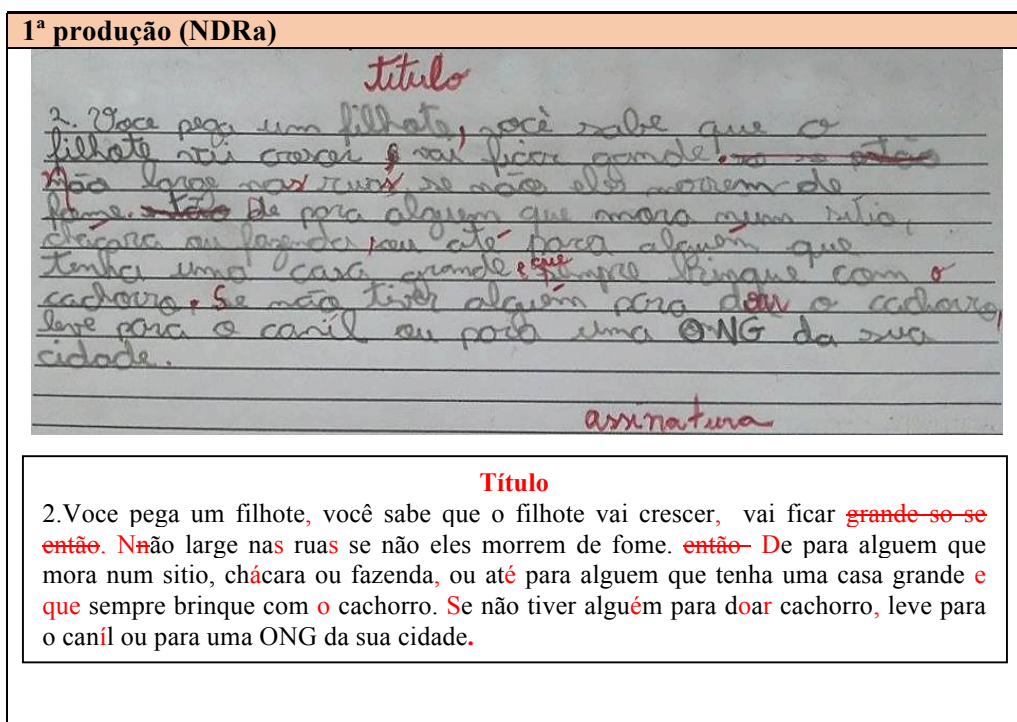 1ª produção (NDRa)
título
2. Voce pega um filhote, você sabe que o
filhote vai crescer, vai ficar gande.
Não large nas ruas, se não eles morrem de
fome. então De para alguem que mora num sitio,
chácara ou fazenda, ou até para alguém que
tenha uma casa grande e que sempre bringue com o
cachorro. Se não tiver alguém para doar o cachorro,
leve para o caníl ou para uma ONG da sua
cidade.
assinatura
Título
2.Voce pega um filhote, você sabe que o filhote vai crescer, vai ficar grande so se
então. Nnão large nas ruas se não eles morrem de fome. então De para alguem que
mora num sitio, chácara ou fazenda, ou até para alguem que tenha uma casa grande e
que sempre brinque com o cachorro. Se não tiver alguém para doar cachorro, leve para
o caníl ou para uma ONG da sua cidade.